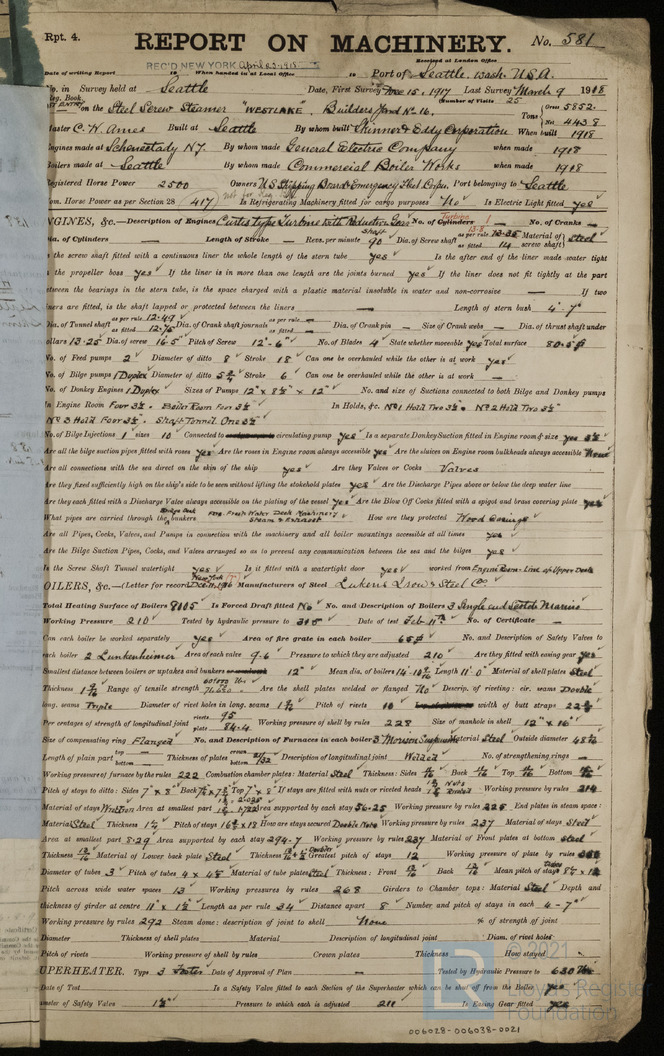 Rpt. 4.
REPORT ON MACHINERY.
No. 581
Received at London Office
REC'D NEW YORK April 23-1918
Date of writing Report 19 When handed in at Local Office 19 Port of Seattle, Wash USA.
No. in Survey held at Seattle Date, First Survey Dec 15, 1917 Last Survey March 9 1918
Reg. Book. (Number of Visits 25
on the Steel Screw Steamer "WESTLAKE", Builders Yard No 16. Tons Gross 5852. Net 4438
Master C. H. Ames Built at Seattle By whom built Skinner & Eddy Corporation When built 1918
Engines made at Schenectady N.Y. By whom made General Electric Company when made 1918
Boilers made at Seattle By whom made Commercial Boiler Works when made 1918
Registered Horse Power 2500 Owners U S Shipping Board & Emergency Fleet Corpn. Port belonging to Seattle
Nom. Horse Power as per Section 28 417 Is Refrigerating Machinery fitted for cargo purposes No Is Electric Light fitted yes
ENGINES, &c.—Description of Engines Curtis type Turbine with Reduction Gear No. of Cylinders 1 No. of Cranks —
Dia. of Cylinders — Length of Stroke — Revs. per minute 90 Dia. of Screw shaft as per rule 13.35 as fitted 14 Material of screw shaft Steel
Is the screw shaft fitted with a continuous liner the whole length of the stern tube yes Is the after end of the liner made water tight
in the propeller boss yes If the liner is in more than one length are the joints burned yes If the liner does not fit tightly at the part
between the bearings in the stern tube, is the space charged with a plastic material insoluble in water and non-corrosive — If two
liners are fitted, is the shaft lapped or protected between the liners — Length of stern bush 4'-7"
Dia. of Tunnel shaft as per rule 12.49 as fitted 12.75 Dia. of Crank shaft journals as per rule — as fitted — Dia. of Crank pin — Size of Crank webs — Dia. of thrust shaft under
collars 13.25 Dia. of screw 16.5 Pitch of Screw 12'-6" No. of Blades 4 State whether moveable yes Total surface 80.5
No. of Feed pumps 2 Diameter of ditto 8 Stroke 18 Can one be overhauled while the other is at work yes
No. of Bilge pumps 1 Duplex Diameter of ditto 5 3/4 Stroke 6 Can one be overhauled while the other is at work —
No. of Donkey Engines 1 Duplex Sizes of Pumps 12" x 8 1/2" x 12" No. and size of Suctions connected to both Bilge and Donkey pumps
In Engine Room Four 3 1/2. Boiler Room Four 3 1/2 In Holds, &c. No 1 Hold Two 3 1/2. No 2 Hold Two 3 1/2
No 3 Hold Four 3 1/2. Shaft Tunnel One 3 1/2
No. of Bilge Injections 1 sizes 10 Connected to circulating pump yes Is a separate Donkey Suction fitted in Engine room & size yes 3 1/2
Are all the bilge suction pipes fitted with roses yes Are the roses in Engine room always accessible yes Are the sluices on Engine room bulkheads always accessible None
Are all connections with the sea direct on the skin of the ship yes Are they Valves or Cocks Valves
Are they fixed sufficiently high on the ship's side to be seen without lifting the stokehold plates yes Are the Discharge Pipes above or below the deep water line
Are they each fitted with a Discharge Valve always accessible on the plating of the vessel yes Are the Blow Off Cocks fitted with a spigot and brass covering plate yes
What pipes are carried through the bunkers Fresh Water Deck Machinery Steam & Exhaust How are they protected Wood Casings
Are all Pipes, Cocks, Valves, and Pumps in connection with the machinery and all boiler mountings accessible at all times yes
Are the Bilge Suction Pipes, Cocks, and Valves arranged so as to prevent any communication between the sea and the bilges yes
Is the Screw Shaft Tunnel watertight yes Is it fitted with a watertight door yes worked from Engine Room - Line of Upper Deck
BOILERS, &c.—(Letter for record Manufacturers of Steel Lukens Iron & Steel Co
Total Heating Surface of Boilers 8005 Is Forced Draft fitted No No. and Description of Boilers 3 Single end Scotch Marine
Working Pressure 210 Tested by hydraulic pressure to 315 Date of test Feb 11th No. of Certificate —
Can each boiler be worked separately yes Area of fire grate in each boiler 65 No. and Description of Safety Valves to
each boiler 2 Lunkenheimer Area of each valve 9.6 Pressure to which they are adjusted 210 Are they fitted with easing gear yes
Smallest distance between boilers or uptakes and bunkers 12" Mean dia. of boilers Length 11'-0" Material of shell plates Steel
Thickness 1 9/16 Range of tensile strength Are the shell plates welded or flanged No Descrip. of riveting: cir. seams Double
long. seams Triple Diameter of rivet holes in long. seams 1 1/2 Pitch of rivets 10 width of butt straps
Per centages of strength of longitudinal joint rivets 95 plate 84.4 Working pressure of shell by rules 228 Size of manhole in shell 12" x 16"
Size of compensating ring Flanged No. and Description of Furnaces in each boiler 3 Morison Suspension Material Steel Outside diameter
Length of plain part top — bottom — Thickness of plates crown bottom Description of longitudinal joint Welded No. of strengthening rings —
Working pressure of furnace by the rules 222 Combustion chamber plates: Material Steel Thickness: Sides Back Top Bottom
Pitch of stays to ditto: Sides 7" x 8" Back Top 7" x 8" If stays are fitted with nuts or riveted heads Working pressure by rules 214
Material of stays Area at smallest part Area supported by each stay 56.25 Working pressure by rules 225 End plates in steam space:
Material Steel Thickness Pitch of stays How are stays secured Double Nuts Working pressure by rules 237 Material of stays Steel
Area at smallest part 8.29 Area supported by each stay 294.7 Working pressure by rules 237 Material of Front plates at bottom Steel
Thickness Material of Lower back plate Steel Thickness Greatest pitch of stays 12 Working pressure of plate by rules
Diameter of tubes 3 Pitch of tubes 4 x 4 1/8 Material of tube plates Steel Thickness: Front Back Mean pitch of stays
Pitch across wide water spaces 13 Working pressures by rules 268 Girders to Chamber tops: Material Steel Depth and
thickness of girder at centre Length as per rule 34 Distance apart 8 Number and pitch of stays in each 4-7"
Working pressure by rules 292 Steam dome: description of joint to shell None % of strength of joint
Diameter Thickness of shell plates Material Description of longitudinal joint Diam. of rivet holes
Pitch of rivets Working pressure of shell by rules Crown plates Thickness How stayed
SUPERHEATER. Type 3 Foster Date of Approval of Plan — Tested by Hydraulic Pressure to 630
Date of Test Is a Safety Valve fitted to each Section of the Superheater which can be shut off from the Boiler yes
Diameter of Safety Valve 1 1/2" Pressure to which each is adjusted 211 Is Easing Gear fitted yes
© 2021
Lloyd's Register
Foundation
006028-006038-0021